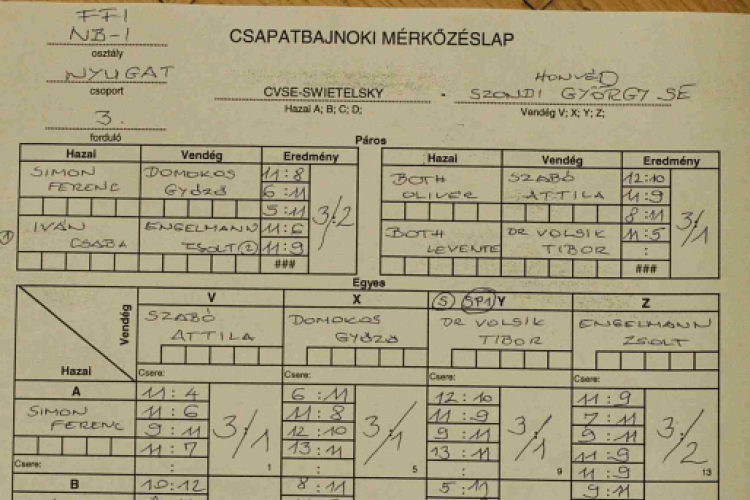 FFI
NB-I
osztály
CSAPATBAJNOKI MÉRKŐZÉSLAP
NYUGAT
csoport
CVSE-SWIETELSKY
Hazai A; B; C; D;
-
HONVÉD
SZONDI GYÖRGY SE
Vendég V; X; Y; Z;
3.
forduló
Páros
Hazai Vendég Eredmény
SIMON FERENC DOMOKOS GYŐZŐ 11:8
6:11
5:11
IVÁN CSABA ENGELMANN ZSOLT (2) 11:6
11:9
###
3/2
Hazai Vendég Eredmény
BOTH OLIVÉR SZABÓ ATTILA 12:10
11:9
8:11
BOTH LEVENTE DR VOLSIK TIBOR 11:5
:
###
3/1
Egyes
Vendég
Hazai
V X (S) (SP1) Y Z
SZABÓ ATTILA
DOMOKOS GYŐZŐ
DR VOLSIK TIBOR
ENGELMANN ZSOLT
Csere: Csere: Csere: Csere:
A
SIMON FERENC
Csere:
11:4 6:11 12:10 11:9
11:6 11:8 11:9 7:11
9:11 12:10 9:11 9:11
11:7 13:11 13:11 11:9
: : : 11:9
3/1 3/1 3/1 3/2
1 5 9 13
B 10:12 8:11 5:11 9:11